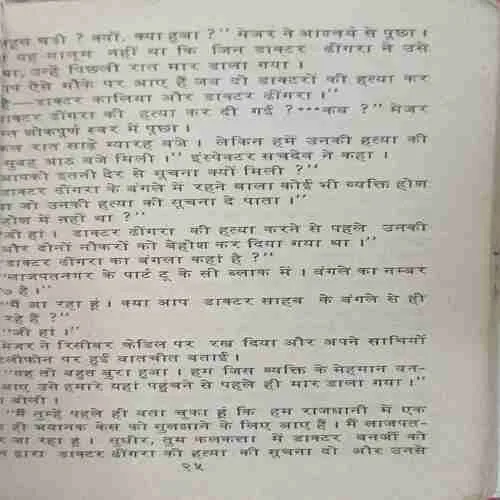 पड़ी ? क्यों, क्या हुआ ?” मेजर ने आश्चर्य से पूछा ।
यह मालूम नहीं था कि जिन डाक्टर ढींगरा ने उसे
उन्हें पिछली रात मार डाला गया ।
ऐसे मौके पर आए हैं जब दो डाक्टरों की हत्या कर
है—डाक्टर कालिया और डाक्टर ढींगरा ।”
डाक्टर ढींगरा की हत्या कर दी गई ? ···कब ?” मेजर
शोकपूर्ण स्वर में पूछा ।
रात साढ़े ग्यारह बजे । लेकिन हमें उनकी हत्या की
सुबह आठ बजे मिली ।” इंस्पेक्टर सचदेव ने कहा ।
आपको इतनी देर से सूचना क्यों मिली ?”
डाक्टर ढींगरा के बंगले में रहने वाला कोई भी व्यक्ति होश
जो उनकी हत्या की सूचना दे पाता ।”
होश में नहीं था ?”
जी हां । डाक्टर ढींगरा की हत्या करने से पहले उनकी
और दोनों नौकरों को बेहोश कर दिया गया था ।”
“डाक्टर ढींगरा का बंगला कहां है ?”
“लाजपतनगर के पार्ट टू के सी ब्लाक में । बंगले का नम्बर
७ है ।”
“मैं आ रहा हूं । क्या आप डाक्टर साहब के बंगले से ही
रहे हैं ?”
“जी हां ।”
मेजर ने रिसीवर क्रेडिल पर रख दिया और अपने साथियों
टेलीफोन पर हुई बातचीत बताई ।
“यह तो बहुत बुरा हुआ । हम जिस व्यक्ति के मेहमान बन-
आए उसे हमारे यहां पहुंचने से पहले ही मार डाला गया ।”
बोली ।
“मैं तुम्हें पहले ही बता चुका हूं कि हम राजधानी में एक
ही भयानक केस को सुलझाने के लिए आए हैं । मैं लाजपत-
जा रहा हूं । सुधीर, तुम कलकत्ता में डाक्टर बनर्जी को
द्वारा डाक्टर ढींगरा की हत्या की सूचना दो और उनसे
२५